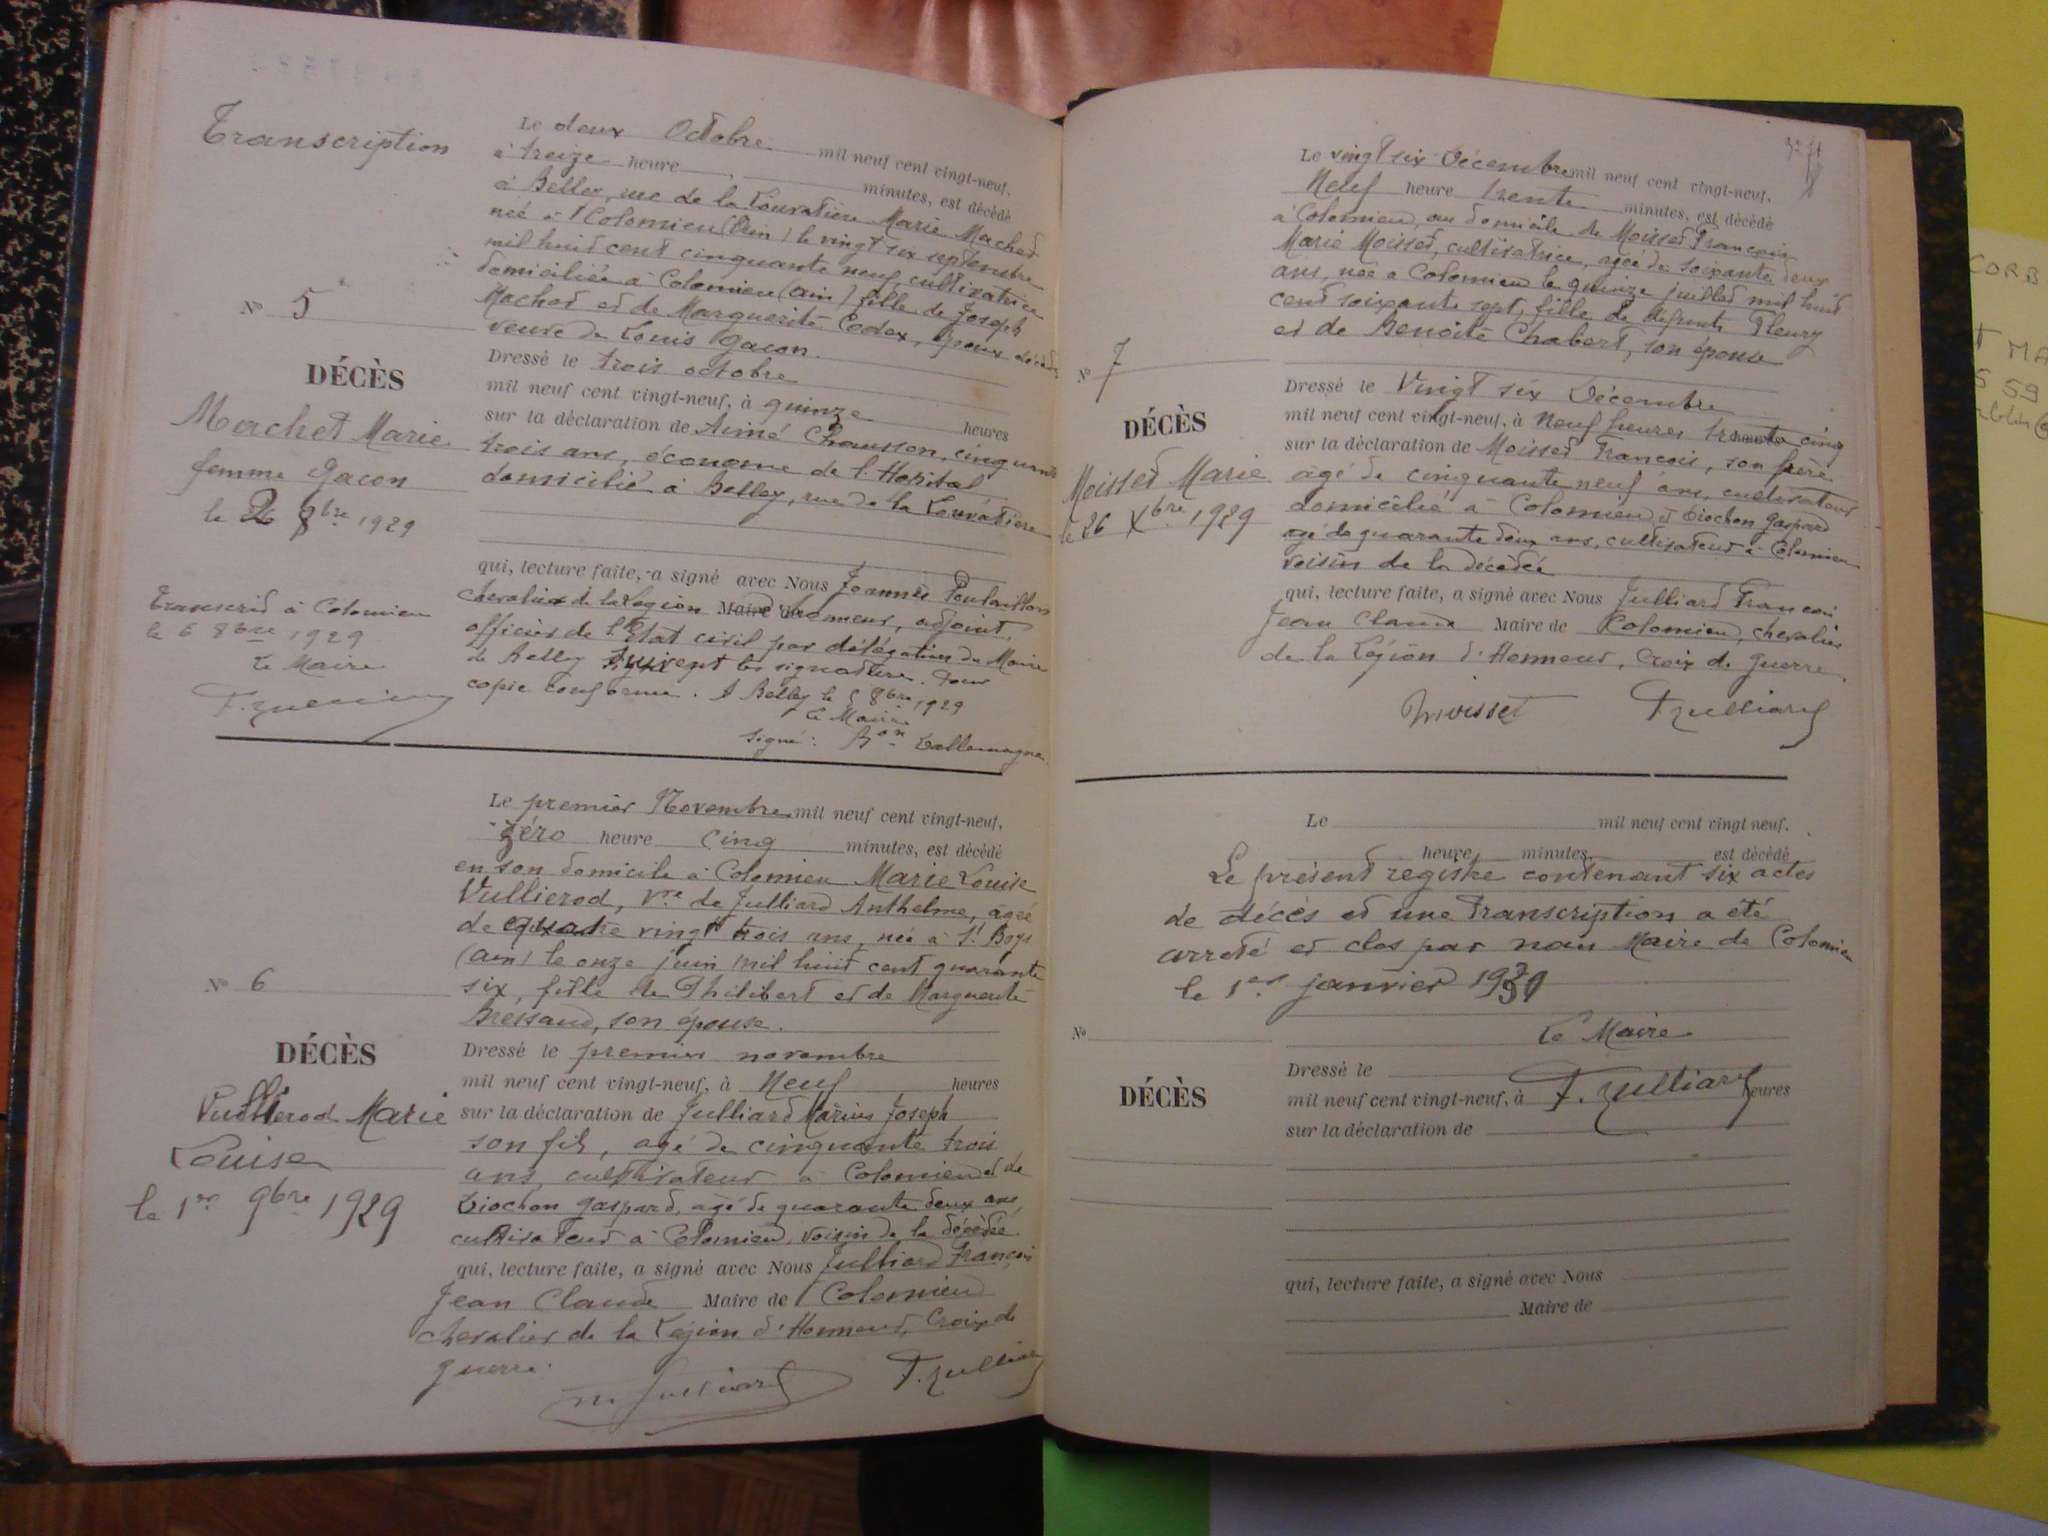 Transcription
Le deux Octobre mil neuf cent vingt-neuf,
à treize heure, minutes, est décédé
à Belley, rue de la Louvatière Marie Machet
née à Colomieu (Ain) le vingt six septembre
mil huit cent cinquante neuf, cultivatrice
domiciliée à Colomieu (Ain) fille de Joseph
Machet et de Marguerite, époux décédés
veuve de Louis Gacon.
Nº 5
DÉCÈS
Machet Marie
femme Gacon
le 2 8bre 1929
Dressé le trois octobre
mil neuf cent vingt-neuf, à quinze heures
sur la déclaration de Aimé Chausson, cinquante
trois ans, économe de l'Hopital
domicilié à Belley, rue de la Louvatière
qui, lecture faite, a signé avec Nous Joannès
chevalier de la Légion Maire de d'honneur, adjoint,
officier de l'Etat civil par délégation du Maire
de Belley suivent les signatures. Pour
copie conforme. A Belley le 5 8bre 1929
Le Maire
signé: Bon Tallemagne
Transcrit à Colomieu
le 6 8bre 1929
Le Maire
Le premier Novembre mil neuf cent vingt-neuf,
zéro heure cinq minutes, est décédé
en son domicile à Colomieu Marie Louise
Vullierod, Vve de Julliard Anthelme, agée
de quatre vingt trois ans, née à St Boys
(Ain) le onze juin mil huit cent quarante
six, fille de Philibert et de Marguerite
Bressand, son épouse.
Nº 6
DÉCÈS
Vullierod Marie
Louise
le 1er 9bre 1929
Dressé le premier novembre
mil neuf cent vingt-neuf, à Neuf heures
sur la déclaration de Julliard Marius Joseph
son fils, agé de cinquante trois
ans, cultivateur à Colomieu et de
Tiochon Gaspard, agé de quarante deux ans
cultivateur à Colomieu, voisin de la décédée
qui, lecture faite, a signé avec Nous Julliard François
Jean Claude Maire de Colomieu
chevalier de la Légion d'Honneur, Croix de
guerre.
M. Julliard F. Julliard
Le vingt six Décembre mil neuf cent vingt-neuf,
Neuf heure trente minutes, est décédé
à Colomieu, au domicile de Moisset François
Marie Moisset, cultivatrice, agée de soixante deux
ans, née à Colomieu le quinze juillet mil huit
cent soixante sept, fille de défunts Fleury
et de Benoîte Chabert, son épouse
Nº 7
DÉCÈS
Moisset Marie
le 26 Xbre 1929
Dressé le Vingt six Décembre
mil neuf cent vingt-neuf, à Neuf heures trente cinq
sur la déclaration de Moisset François, son frère
agé de cinquante neuf ans, cultivateur
domicilié à Colomieu et Tiochon Gaspard
agé de quarante deux ans, cultivateur à Colomieu
voisin de la décédée
qui, lecture faite, a signé avec Nous Julliard François
Jean Claude Maire de Colomieu, chevalier
de la Légion d'Honneur, Croix de guerre.
Moisset F. Julliard
Le mil neuf cent vingt neuf,
heure, minutes, est décédé
Le présent registre contenant six actes
de décès et une transcription a été
arrêté et clos par nous Maire de Colomieu
le 1er janvier 1930
Le Maire
F. Julliard
Nº
DÉCÈS
Dressé le
mil neuf cent vingt-neuf, à heures
sur la déclaration de
qui, lecture faite, a signé avec Nous
Maire de
CORB
MA
59